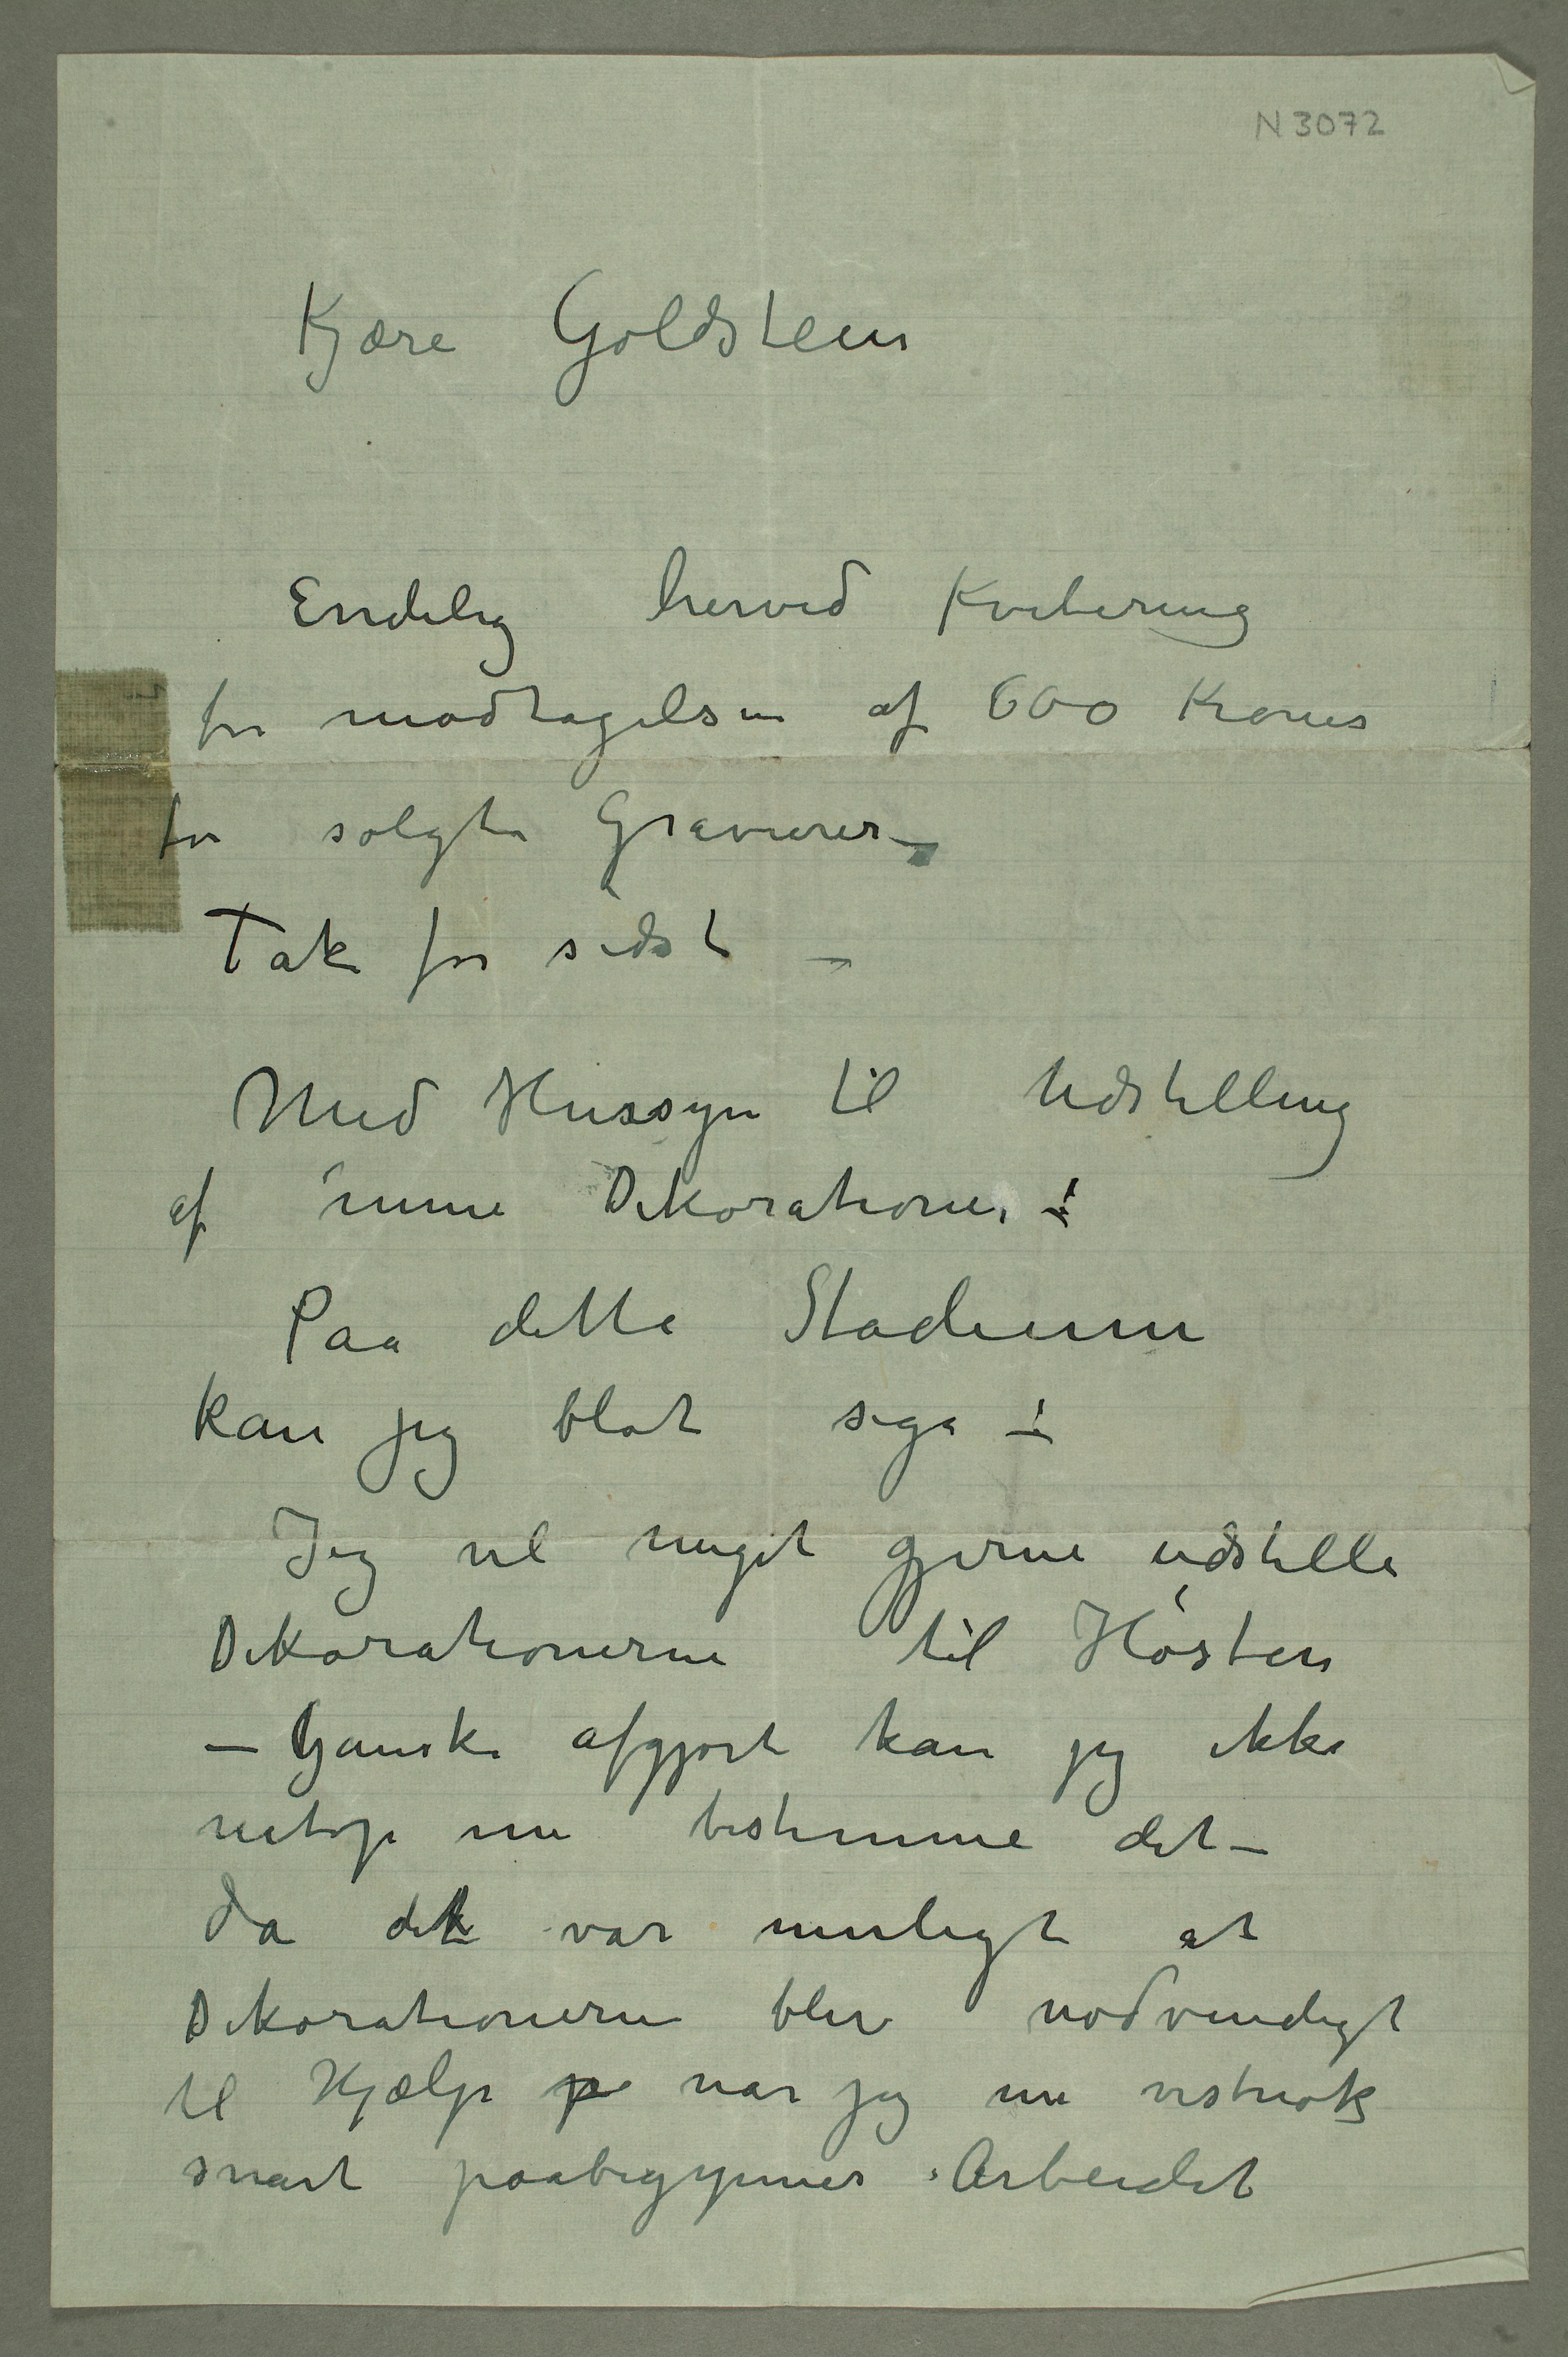 N 3072
Kjære Goldstein
Endelig herved Kvitering
for modtagelsen af 600 Kroner
for solgte Gravurer –
Tak for sidst –
Med Hensyn til Udstilling
af mine Dekorationer –!
Paa dette Stadium
kan jeg blot sige –!
Jeg vil meget gjerne udstille
Dekorationerne til Høsten
– Ganske afgjort kan jeg ikke
netop nu bestemme det –
da det var muligt at
Dekorationerne blev nødvendigt
til Hjælp når jeg nu vistnok
snart paabegynner Arbeidet